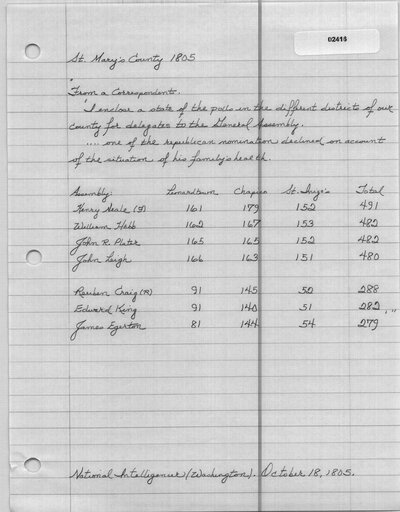 02416
St. Mary's County 1805
"
From a Correspondent.
I enclose a state of the polls in the different districts of our
county for delegates to the General Assembly.
.... one of the republican nomination declined on account
of the situation of his family's health.
Assembly: Leonardtown Chaptico St. Inigo's Total
Henry Neale (F) 161 179 152 491
William Hebb 162 167 153 482
John R. Plater 165 165 152 482
John Leigh 166 163 151 480
Reuben Craig (R) 91 145 52 288
Edward King 91 140 51 282
James Egerton 81 144 54 279 "
National Intelligencer (Washington). October 18, 1805.